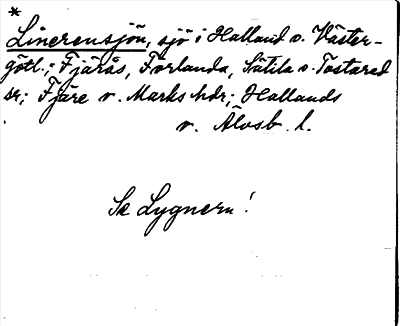 *
Linerensjön, sjö i Halland o. Väster-
götl.; Fjärås, Förlanda, Sätila o. Tostared
sr; Fjäre o. Marks hdr; Hallands
o. Älvsb. l.
Se Lygnern!